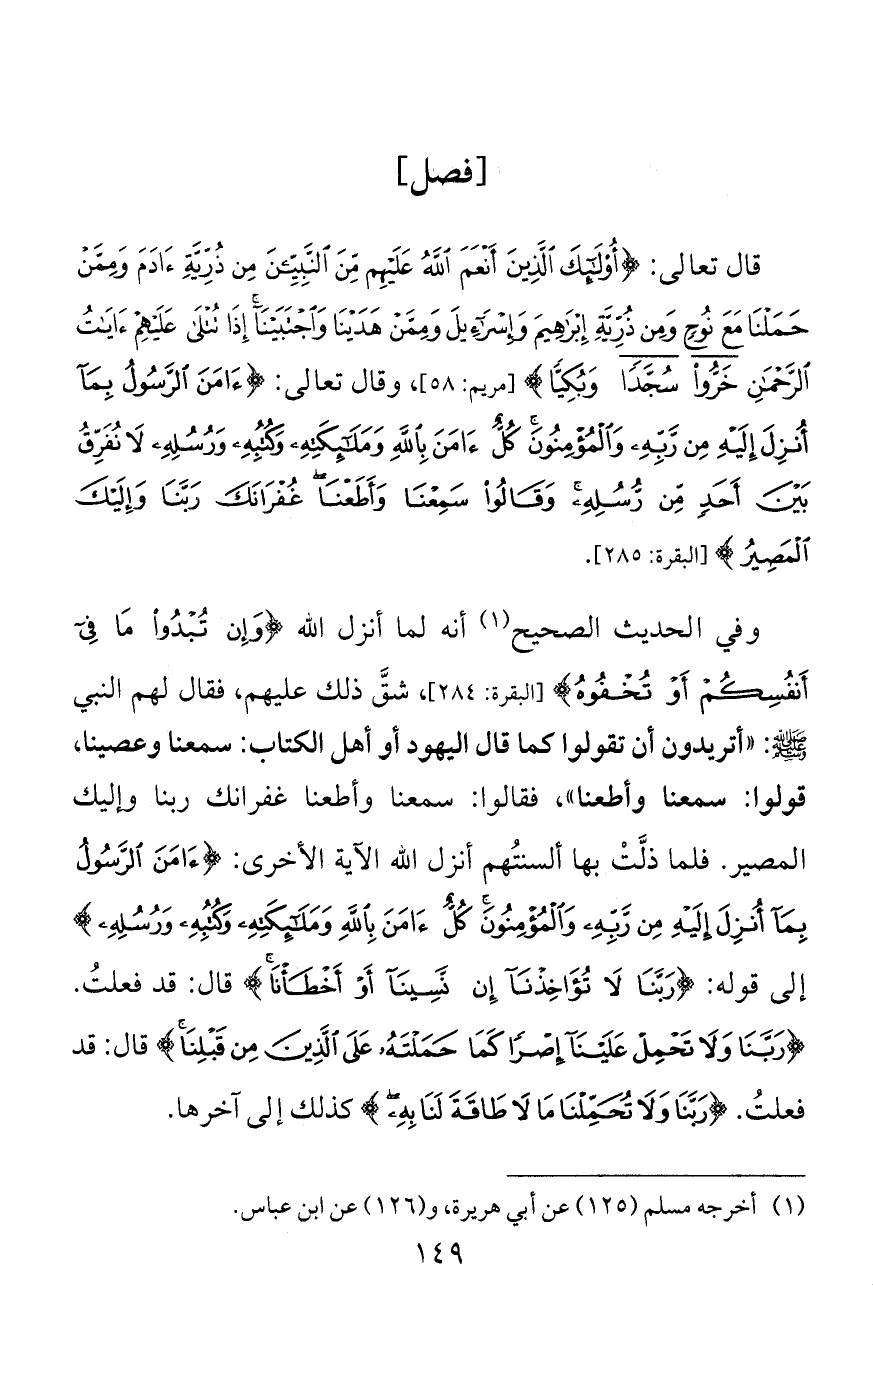 [فصل]
قال تعالى: ﴿أُوْلَٰٓئِكَ ٱلَّذِينَ أَنْعَمَ ٱللَّهُ عَلَيْهِم مِّنَ ٱلنَّبِيِّـۧنَ مِن ذُرِّيَّةِ ءَادَمَ وَمِمَّنْ
حَمَلْنَا مَعَ نُوحٍ وَمِن ذُرِّيَّةِ إِبْرَٰهِيمَ وَإِسْرَٰٓءِيلَ وَمِمَّنْ هَدَيْنَا وَٱجْتَبَيْنَآ ۚ إِذَا تُتْلَىٰ عَلَيْهِمْ ءَايَٰتُ
ٱلرَّحْمَٰنِ خَرُّوا۟ سُجَّدًا وَبُكِيًّا﴾ [مريم: ٥٨]، وقال تعالى: ﴿ءَامَنَ ٱلرَّسُولُ بِمَآ
أُنزِلَ إِلَيْهِ مِن رَّبِّهِۦ وَٱلْمُؤْمِنُونَ ۚ كُلٌّ ءَامَنَ بِٱللَّهِ وَمَلَٰٓئِكَتِهِۦ وَكُتُبِهِۦ وَرُسُلِهِۦ لَا نُفَرِّقُ
بَيْنَ أَحَدٍ مِّن رُّسُلِهِۦ ۚ وَقَالُوا۟ سَمِعْنَا وَأَطَعْنَا ۖ غُفْرَانَكَ رَبَّنَا وَإِلَيْكَ
ٱلْمَصِيرُ﴾ [البقرة: ٢٨٥].
وفي الحديث الصحيح(١) أنه لما أنزل الله ﴿وَإِن تُبْدُوا۟ مَا فِىٓ
أَنفُسِكُمْ أَوْ تُخْفُوهُ﴾ [البقرة: ٢٨٤]، شقَّ ذلك عليهم، فقال لهم النبي
ﷺ: «أتريدون أن تقولوا كما قال اليهود أو أهل الكتاب: سمعنا وعصينا،
قولوا: سمعنا وأطعنا»، فقالوا: سمعنا وأطعنا غفرانك ربنا وإليك
المصير. فلما ذلَّتْ بها ألسنتُهم أنزل الله الآية الأخرى: ﴿ءَامَنَ ٱلرَّسُولُ
بِمَآ أُنزِلَ إِلَيْهِ مِن رَّبِّهِۦ وَٱلْمُؤْمِنُونَ ۚ كُلٌّ ءَامَنَ بِٱللَّهِ وَمَلَٰٓئِكَتِهِۦ وَكُتُبِهِۦ وَرُسُلِهِۦ﴾
إلى قوله: ﴿رَبَّنَا لَا تُؤَاخِذْنَآ إِن نَّسِينَآ أَوْ أَخْطَأْنَا ۚ﴾ قال: قد فعلتُ.
﴿رَبَّنَا وَلَا تَحْمِلْ عَلَيْنَآ إِصْرًا كَمَا حَمَلْتَهُۥ عَلَى ٱلَّذِينَ مِن قَبْلِنَا ۚ﴾ قال: قد
فعلتُ. ﴿رَبَّنَا وَلَا تُحَمِّلْنَا مَا لَا طَاقَةَ لَنَا بِهِۦ ۖ﴾ كذلك إلى آخرها.
(١) أخرجه مسلم (١٢٥) عن أبي هريرة، و(١٢٦) عن ابن عباس.
١٤٩